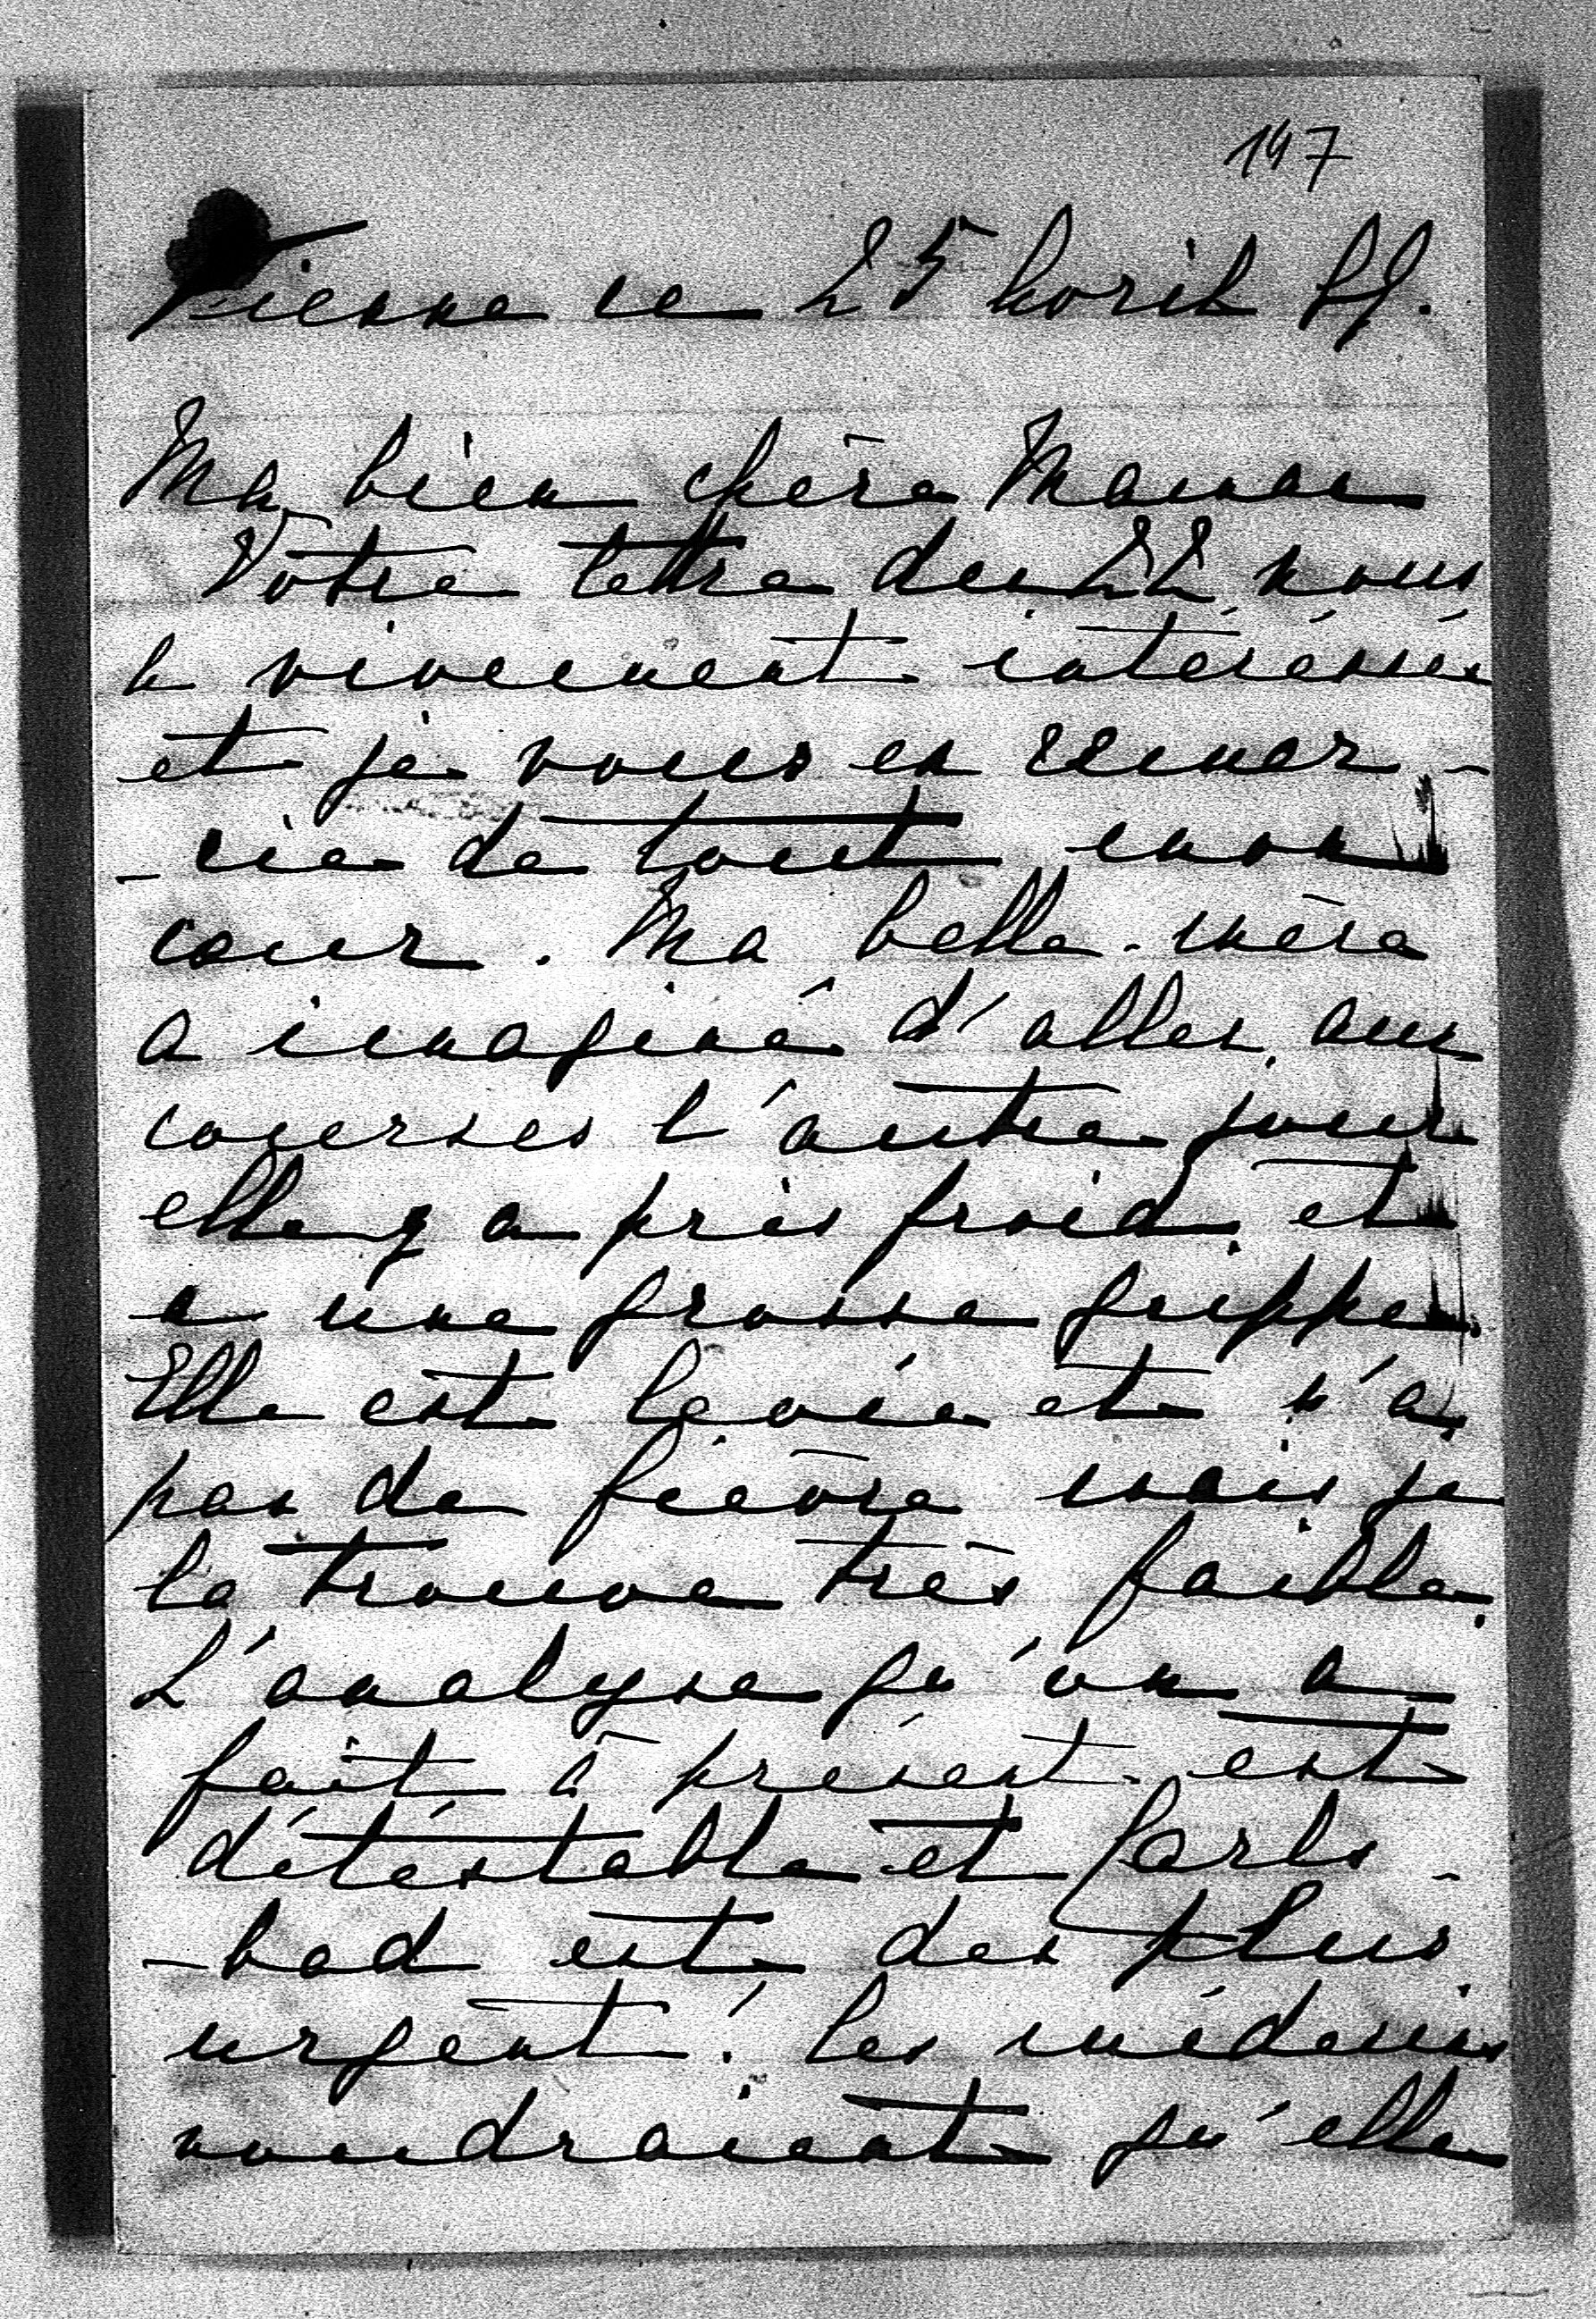 147
Vienne ce 25 Avril
Ma bien chère Maman
Votre lettre du 22 nous
a vivement intéréssés
et je vous en remer-
-cie de tout mon
cœur. Ma belle-mère
a imaginé d'aller aux
courses l'autre jour
elle y a pris froid et
a une grosse grippe.
Elle est levée et n'a
pas de fièvre mais je
la trouve très faible.
L'analyse qu'on a
fait à présent est
détéstable et Carls-
-bad est des plus
urgent! les médecins
voudraient qu'elle